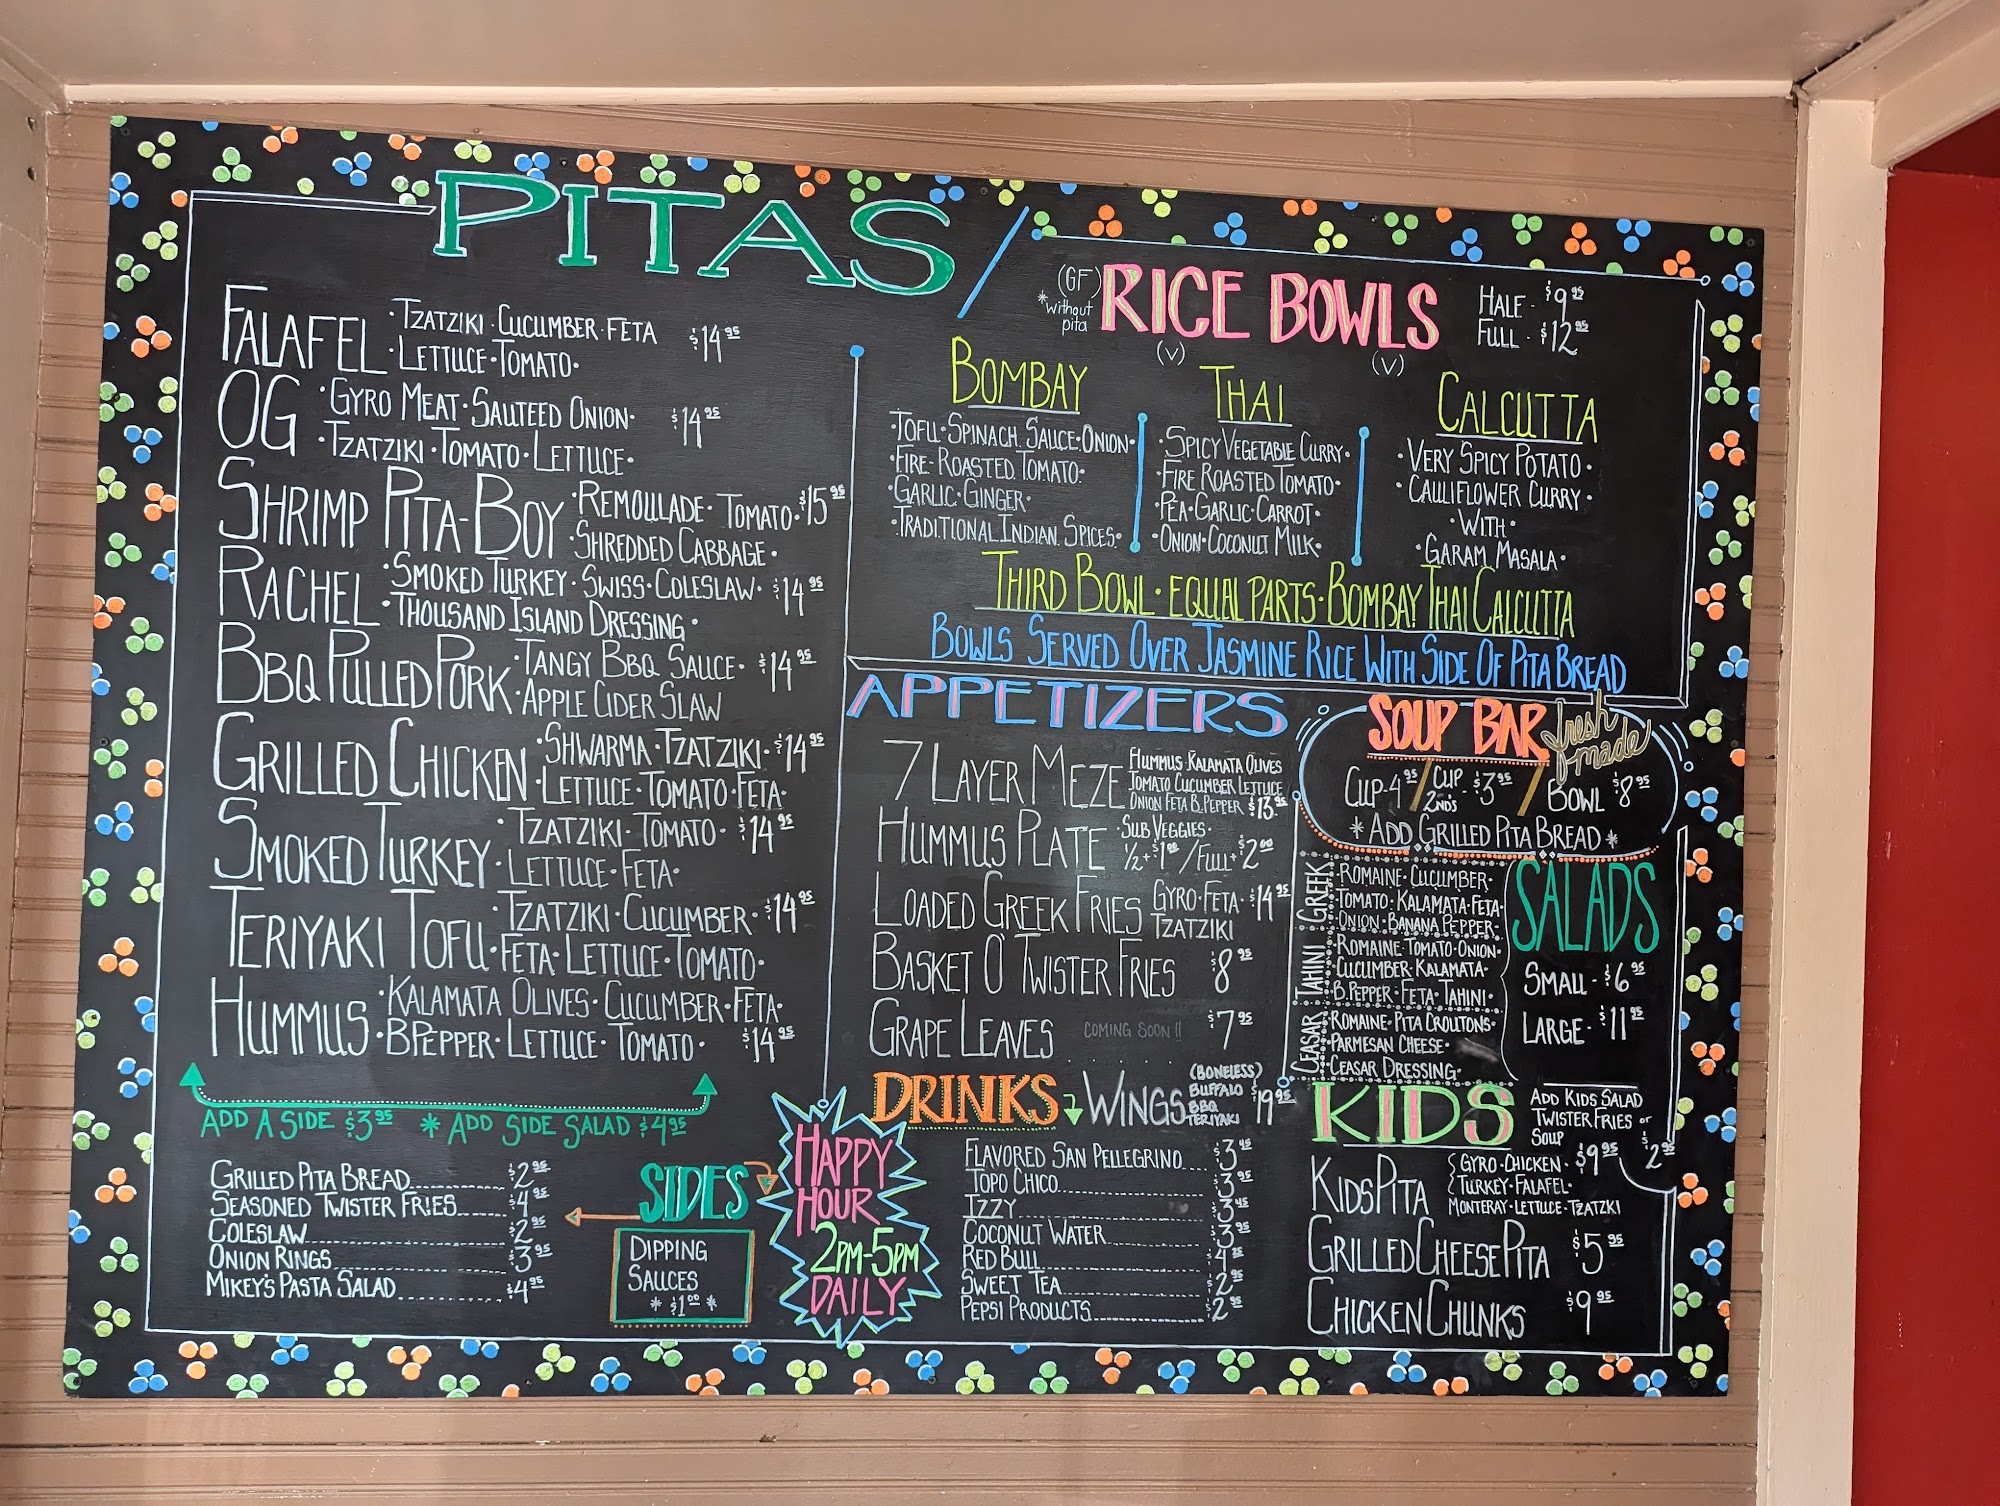 PITAS
FALAFEL · TZATZIKI · CUCUMBER · FETA $14.95
· LETTUCE · TOMATO ·
OG · GYRO MEAT · SAUTEED ONION · $14.95
· TZATZIKI · TOMATO · LETTUCE ·
SHRIMP PITA-BOY · REMOULLADE · TOMATO · $15.95
· SHREDDED CABBAGE ·
RACHEL · SMOKED TURKEY · SWISS · COLESLAW · $14.95
· THOUSAND ISLAND DRESSING ·
BBQ PULLED PORK · TANGY BBQ SAUCE · $14.95
· APPLE CIDER SLAW
GRILLED CHICKEN · SHWARMA · TZATZIKI · $14.95
· LETTUCE · TOMATO · FETA ·
SMOKED TURKEY · TZATZIKI · TOMATO · $14.95
· LETTUCE · FETA ·
TERIYAKI TOFU · TZATZIKI · CUCUMBER · $14.95
· FETA · LETTUCE · TOMATO ·
HUMMUS · KALAMATA OLIVES · CUCUMBER · FETA ·
· B.PEPPER · LETTUCE · TOMATO · $14.95
ADD A SIDE $3.95 * ADD SIDE SALAD $4.95
SIDES
GRILLED PITA BREAD $2.95
SEASONED TWISTER FRIES $4.95
COLESLAW $2.95
ONION RINGS $3.95
MIKEY'S PASTA SALAD $4.95
DIPPING
SAUCES
* $1.00 *
HAPPY
HOUR
2PM-5PM
DAILY
(GF)
*without
pita
RICE BOWLS
HALF - $9.95
FULL - $12.95
(V)
(V)
BOMBAY
· TOFU · SPINACH SAUCE · ONION ·
· FIRE-ROASTED TOMATO ·
· GARLIC · GINGER ·
· TRADITIONAL INDIAN SPICES ·
THAI
· SPICY VEGETABLE CURRY ·
· FIRE ROASTED TOMATO ·
· PEA · GARLIC · CARROT ·
· ONION · COCONUT MILK ·
CALCUTTA
· VERY SPICY POTATO ·
· CAULIFLOWER CURRY ·
· WITH ·
· GARAM MASALA ·
THIRD BOWL · EQUAL PARTS · BOMBAY THAI CALCUTTA
BOWLS SERVED OVER JASMINE RICE WITH SIDE OF PITA BREAD
APPETIZERS
7 LAYER MEZE HUMMUS KALAMATA OLIVES
TOMATO CUCUMBER LETTUCE
ONION FETA B.PEPPER $13.95
HUMMUS PLATE · SUB VEGGIES ·
1/2 + $1.00 / FULL + $2.00
LOADED GREEK FRIES GYRO · FETA · $14.95
TZATZIKI
BASKET O' TWISTER FRIES $8.95
GRAPE LEAVES COMING SOON!! $7.95
WINGS (BONELESS) $19.95
BUFFALO
BBQ
TERIYAKI
DRINKS
FLAVORED SAN PELLEGRINO $3.45
TOPO CHICO $3.95
IZZY $3.45
COCONUT WATER $3.95
RED BULL $4.25
SWEET TEA $2.95
PEPSI PRODUCTS $2.95
SOUP BAR
fresh
made
CUP - 4.95 / CUP 2ND'S - $3.95 / BOWL $8.95
* ADD GRILLED PITA BREAD *
SALADS
SMALL - $6.95
LARGE - $11.95
GREEK
· ROMAINE · CUCUMBER ·
TOMATO · KALAMATA · FETA ·
· ONION · BANANA PEPPER ·
TAHINI
· ROMAINE · TOMATO · ONION ·
· CUCUMBER · KALAMATA ·
B.PEPPER · FETA · TAHINI ·
CEASAR
· ROMAINE · PITA CROUTONS ·
· PARMESAN CHEESE ·
· CEASAR DRESSING ·
KIDS
ADD KIDS SALAD
TWISTER FRIES or
SOUP $2.95
KIDS PITA GYRO · CHICKEN · $9.95
TURKEY · FALAFEL ·
MONTEREY · LETTUCE · TZATZIKI
GRILLED CHEESE PITA $5.95
CHICKEN CHUNKS $9.95